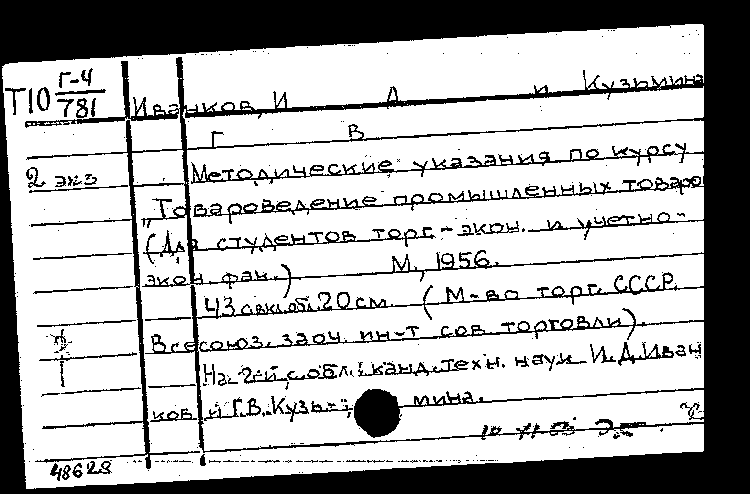 Т10 Г-4/781
Иванков, И Д и Кузьмина
Г В
2 экз Методические указания по курсу
„Товароведение промышленных товаро
(Для студентов торг.-экон. и учетно-
экон. фак.) М., 1956.
43 с. 20 см. (М-во торг. СССР.
Всесоюз. заоч. ин-т сов. торговли).
На 2-й с. обл.: канд. техн. наук И.Д. Иван
ков и Г.В. Кузьмина.
48628